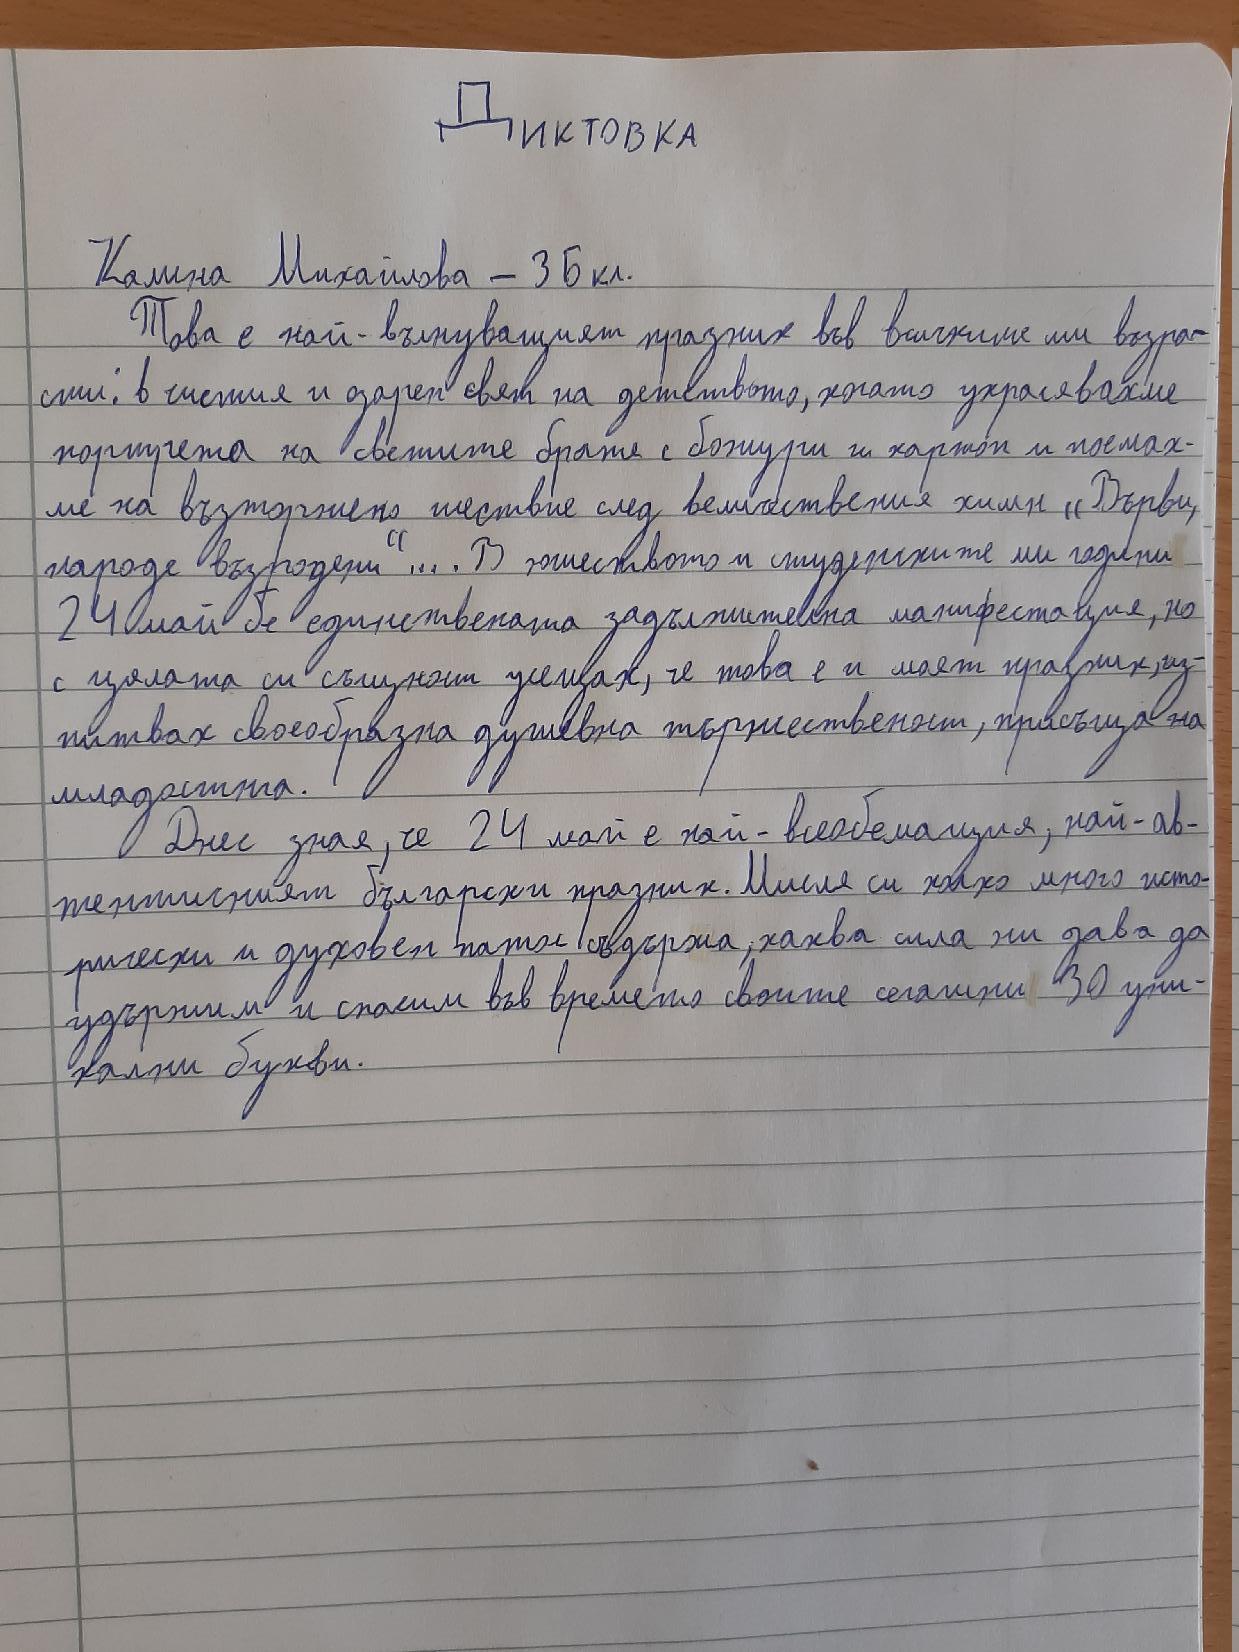 Диктовка
Калина Михайлова – 3 Б кл.
Това е най-вълнуващият празник във всичките ми възра-
сти: в чистия и озарен свят на детството, когато украсявахме
портрета на светите братя с божури и картон и поемах-
ме на възторжено шествие след величествения химн „Върви,
народе възродени“.... В юшеството и студентските ми години
24 май бе единствената задължителна манифестация, но
с цялата си същност усещах, че това е и моят празник, из-
питвах своеобразна душевна тържественост, присъща на
младостта.
Днес зная, че 24 май е най-всеобемащия, най-ав-
тентичният български празник. Мисля си колко много исто-
рически и духовен патос съдържа, каква сила ни дава да
удържим и спасим във времето своите сегашни 30 уни-
кални букви.